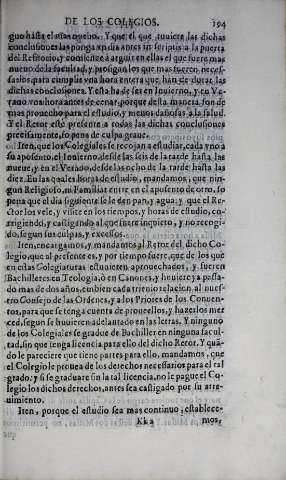 DE LOS COLEGIOS. 194
guo hasta el mas nueuo. Y que el que tuuiera las dichas
conclusiones las ponga vn dia antes in scriptis a la puerta
del Refitorio, y comience à arguir en ellas el que fuere mas
nueuo de la facultad, y prosigan los que mas fueren neces-
sarios, para cumplir vna hora entera que han de durar las
dichas conclusiones. Y esta ha de ser en Inuierno, y en Ve-
rano vna hora antes de cenar, porque desta manera, son de
mas prouecho para el estudio, y menos dañosas à la salud.
Y el Retor estè presente a todas las dichas conclusiones
precisamente, so pena de culpa graue.
Iten, que los Colegiales se recojan a estudiar, cada vno a
su aposento, el Inuierno, desde las seis de la tarde hasta las
nueue, y en el Verano, desde las ocho de la tarde hasta las
diez. En las quales horas de estudio, mandamos, que nin-
gun Religioso, ni Familiar entre en el aposento de otro, so
pena que al dia siguiente se le den pan, y agua: y que el Re-
ctor los vele, y visite en los tiempos, y horas de estudio, co-
rrigiendo, y castigando al que fuere inquieto, y no recogi-
do, segun sus culpas, y excessos.
Iten, encargamos, y mandamos al Retor del dicho Co-
legio, que al presente es, y por tiempo fuere, que de los que
en estas Colegiaturas estuuieren aprouechados, y fueren
Bachilleres en Teologia, ò en Canones, y huuiere ya passa-
do mas de dos años, embien cada trienio relacion al nues-
tro Consejo de las Ordenes, y a los Priores de los Conuen-
tos, para que se tenga cuenta de proueellos, y hazerlos mer
ced, segun se huuieren adelantado en las letras. Y ninguno
de los Colegiales se gradue de Bachiller en ninguna facul-
tad, sin que tenga licencia para ello del dicho Retor. Y quã-
do le pareciere que tiene partes para ello, mandamos, que
el Colegio le prouea de los derechos necessarios para el ral
grado: y si se graduare sin la tal licencia, no le pague el Co-
legio los dichos derechos, antes sea castigado por su atre-
uimiento.
Iten, porque el estudio sea mas continuo, establece-
Kk 2 mos,